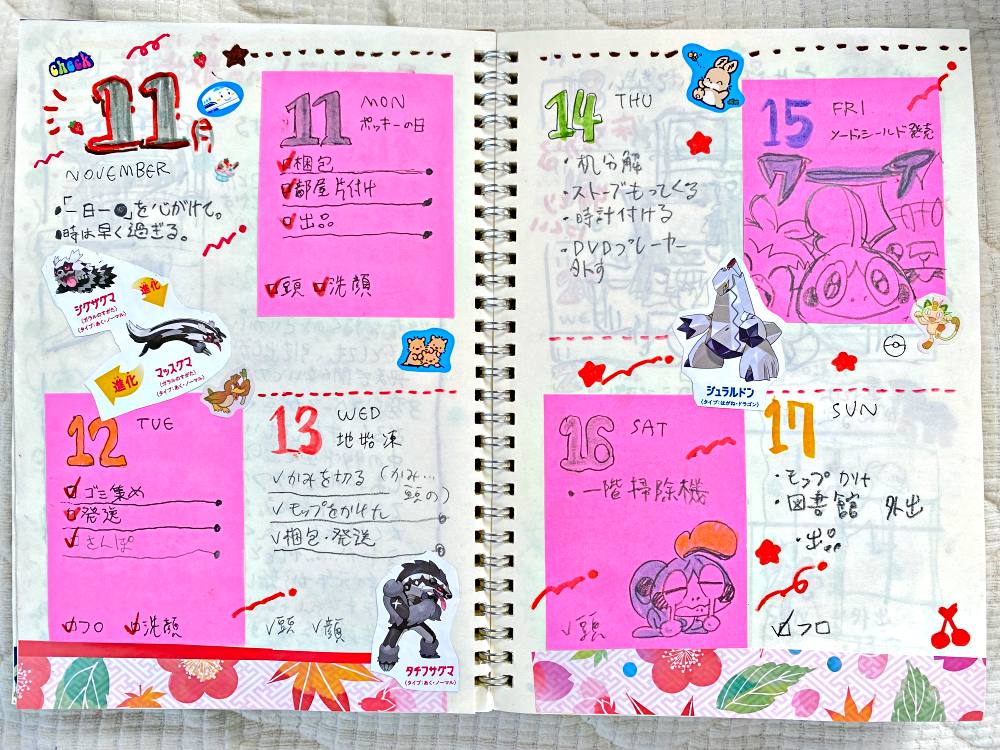 check
11月
NOVEMBER
・「一日一●」を心がけて。
・時は早く過ぎる。
ジグザグマ
(ガラルのすがた)
(タイプ:あく・ノーマル)
進化
マッスグマ
(ガラルのすがた)
(タイプ:あく・ノーマル)
進化
11 MON
ポッキーの日
梱包
部屋片付け
出品
頭 洗顔
12 TUE
ゴミ集め
発送
さんぽ
フロ 洗顔
13 WED
地始凍
かみを切る(かみ…
頭の)
モップをかけた
梱包・発送
頭 顔
タチフサグマ
(タイプ:あく・ノーマル)
14 THU
・机分解
・ストーブもってくる
・時計付ける
・DVDプレーヤー
外す
ジュラルドン
(タイプ:はがね・ドラゴン)
15 FRI
ソードシールド発売
16 SAT
・一階掃除機
頭
17 SUN
・モップかけ
・図書館 外出
・出品
フロ